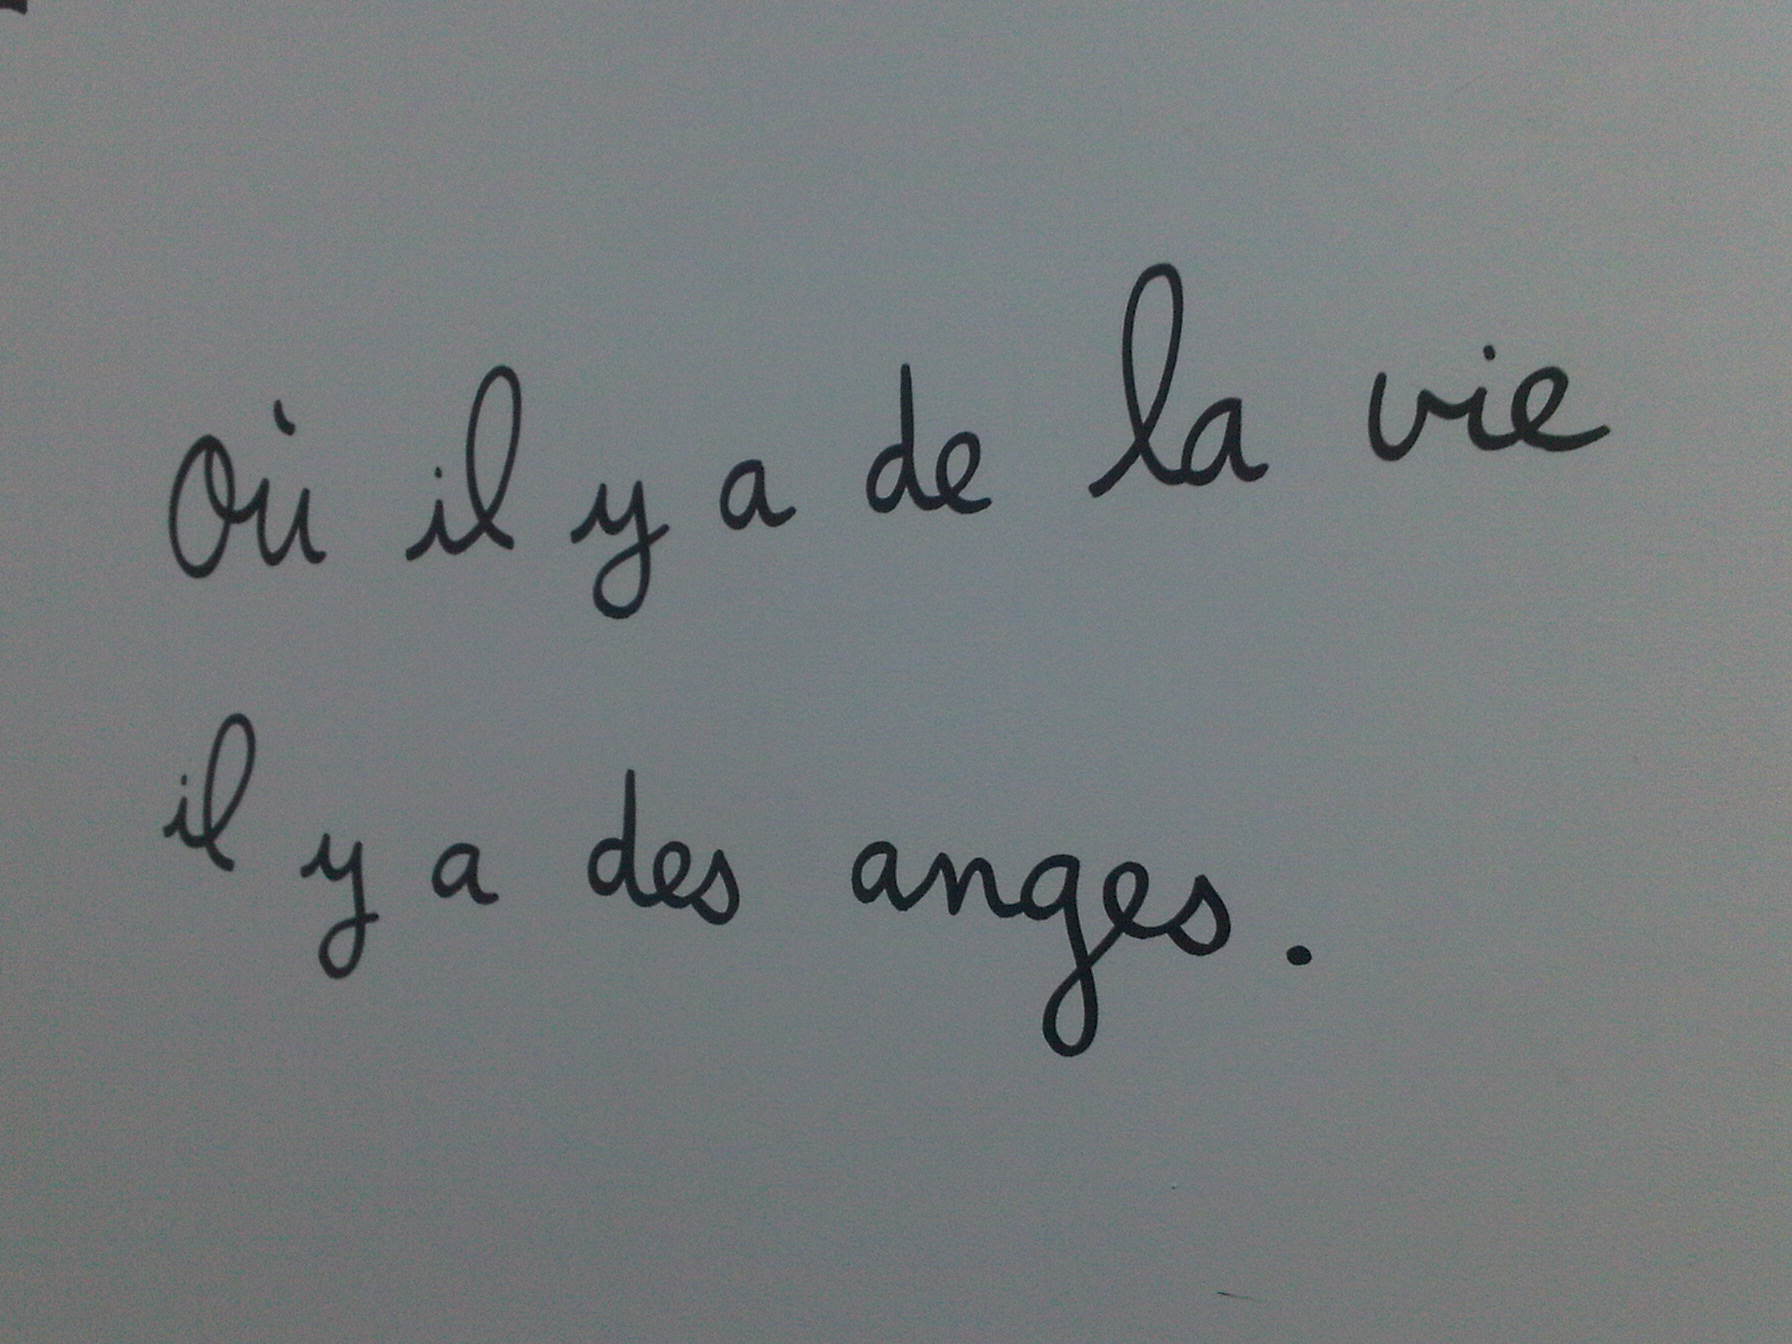 Où il y a de la vie
il y a des anges.